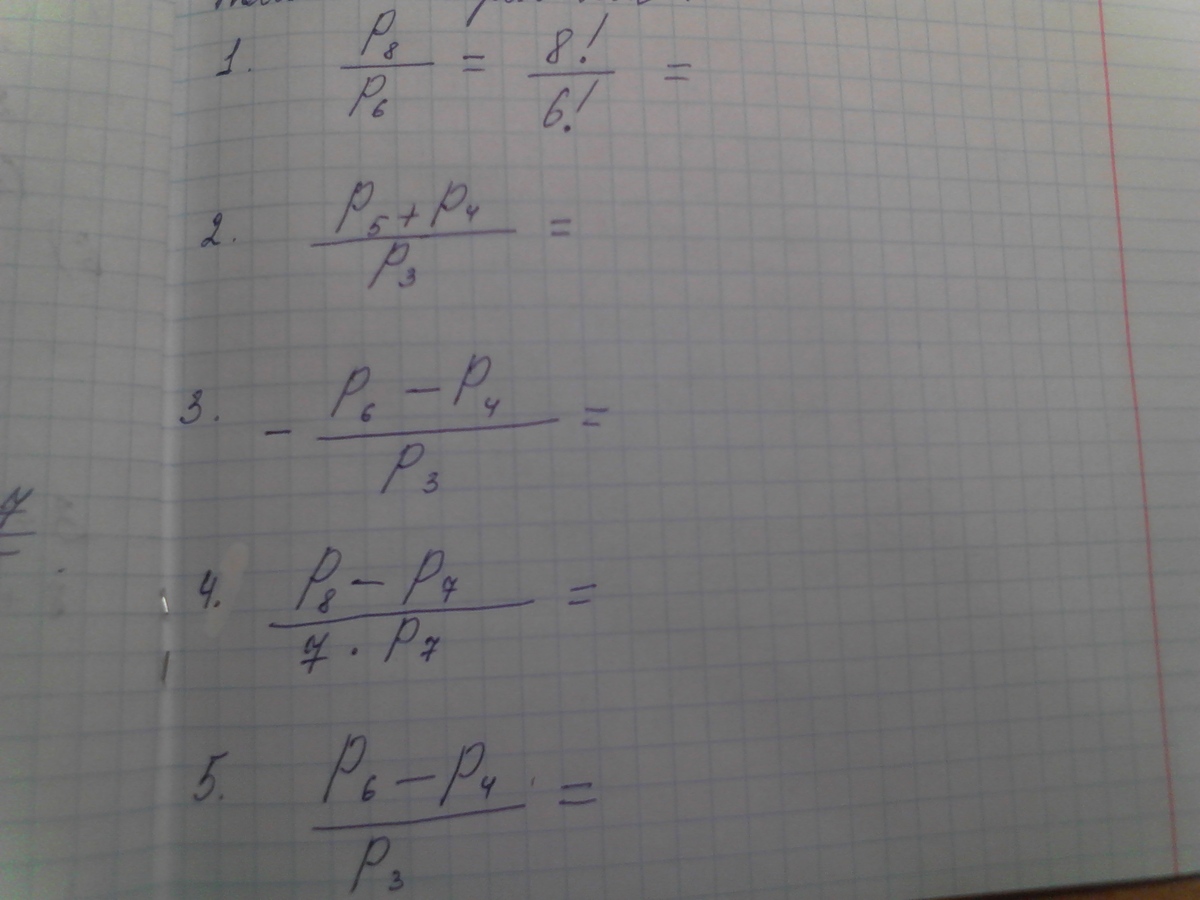 1. P₈/P₆ = 8!/6! =
2. P₅ + P₄/P₃ =
3. - P₆ − P₄/P₃ =
4. P₈ − P₇/7 · P₇ =
5. P₆ − P₄/P₃ =
7